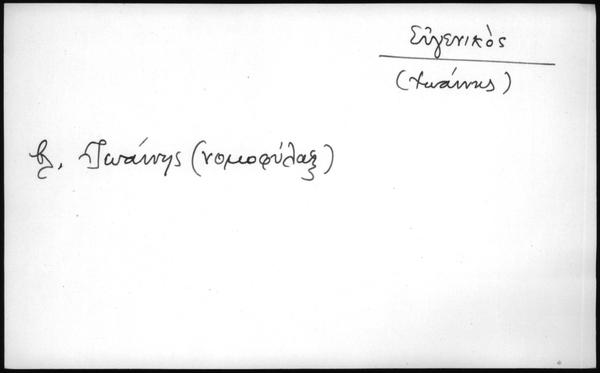 Εὐγενικὸς
(Ἰωάννης)
βλ. Ἰωάννης (νομοφύλαξ)